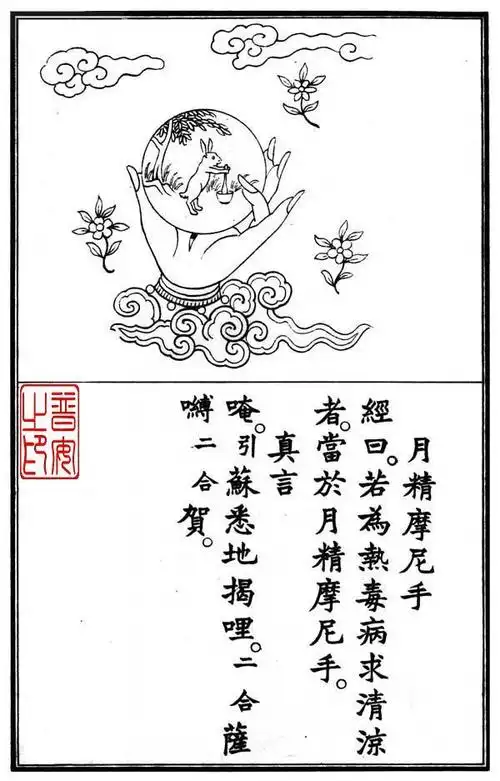 月精摩尼手
經曰。若為熱毒病求清涼
者。當於月精摩尼手。
真言
唵。引蘇悉地揭哩。二合薩
嚩二合賀。
普安之印